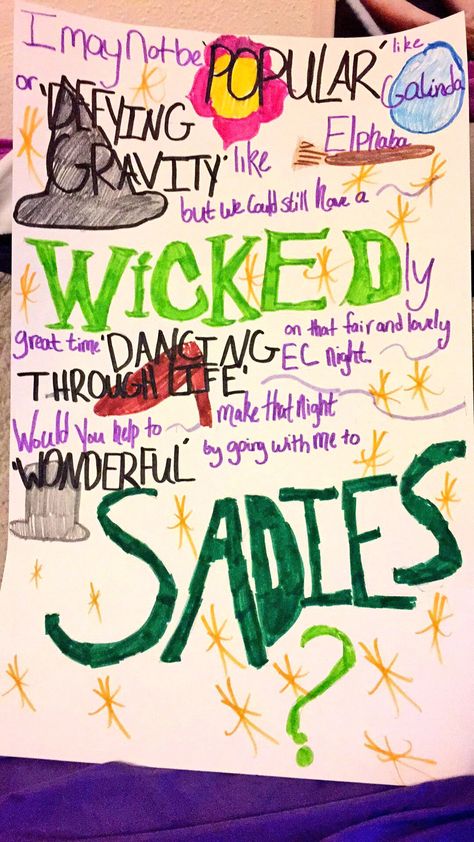 I may Not be 'POPULAR' like
Galinda
or 'DEFYING
GRAVITY' like Elphaba
but we could still have a
WICKEDly
great time 'DANCING on that fair and lovely
THROUGH LIFE' EC Night.
Would you help to make that Night
'WONDERFUL' by going with me to
SADIES
?